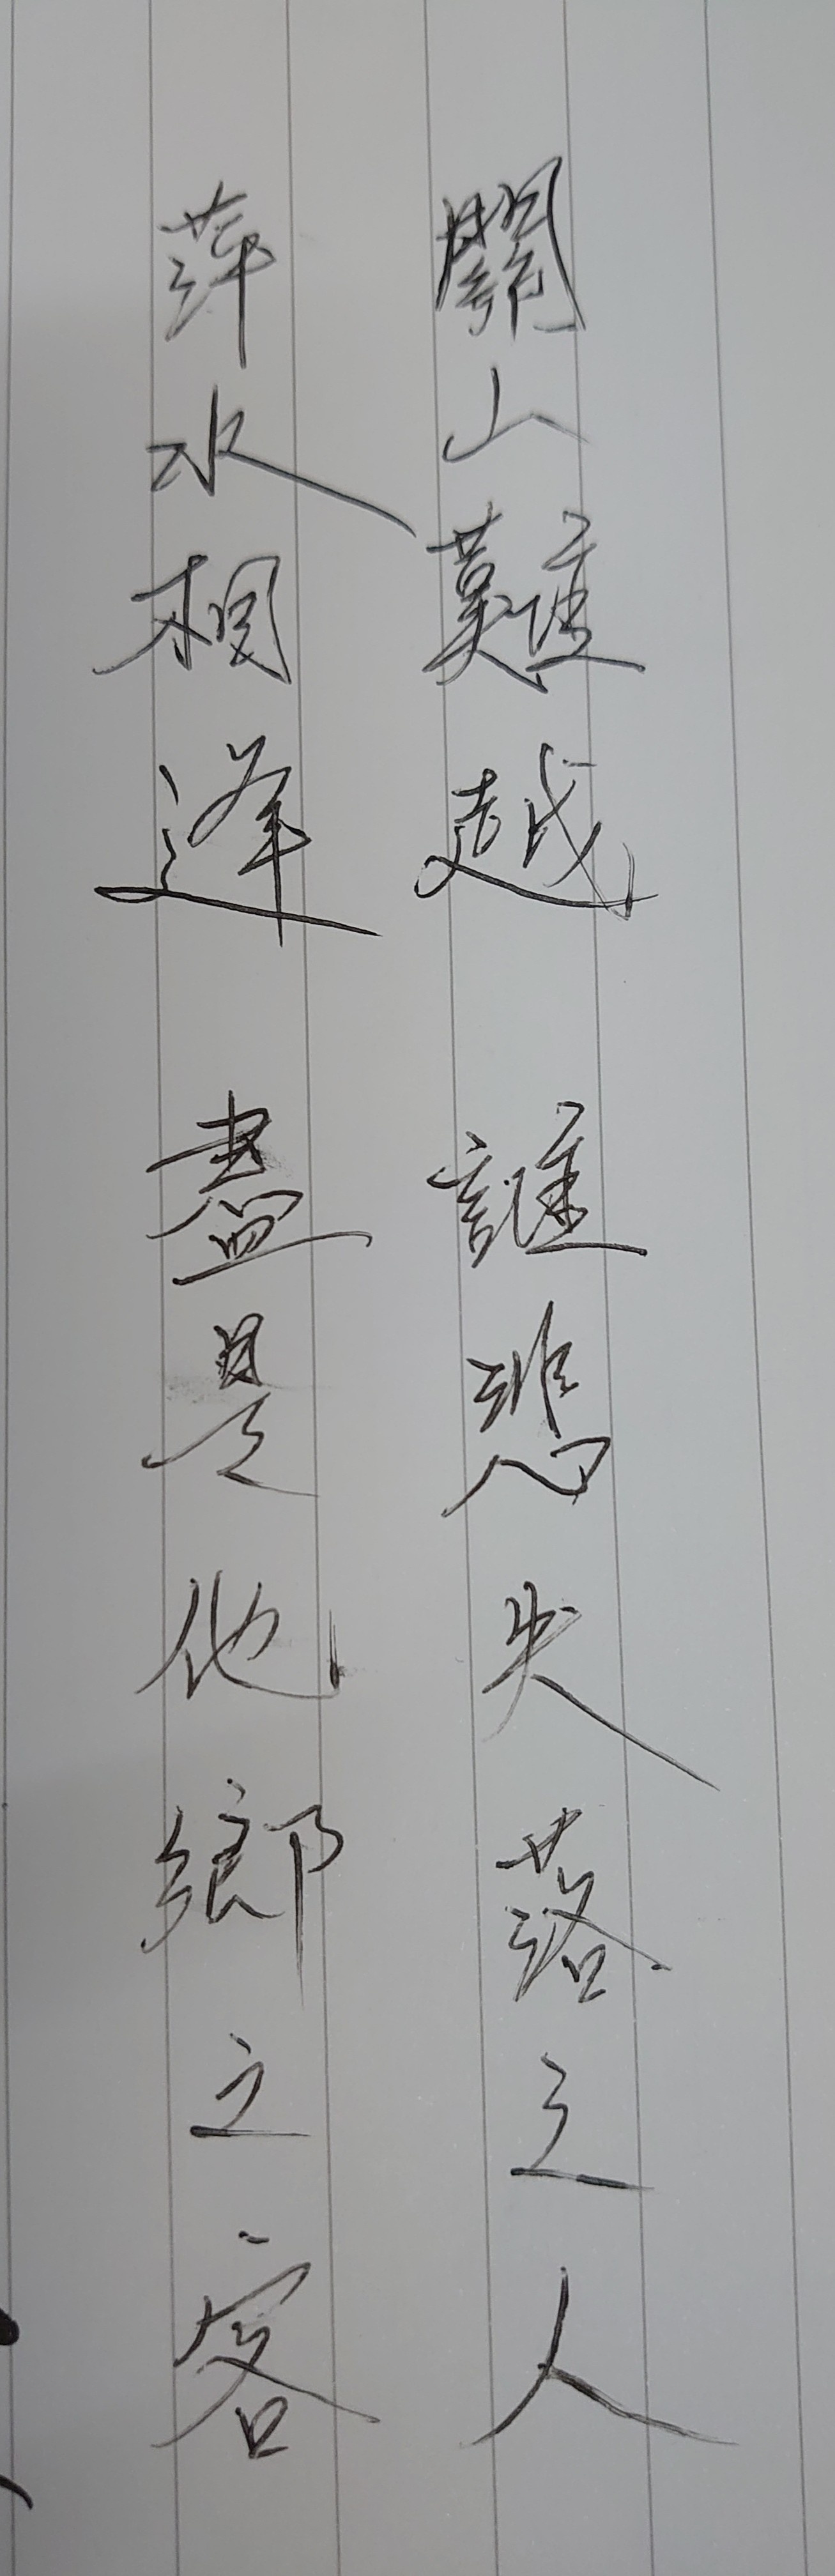 關山難越 誰悲失落之人
萍水相逢 盡是他鄉之客